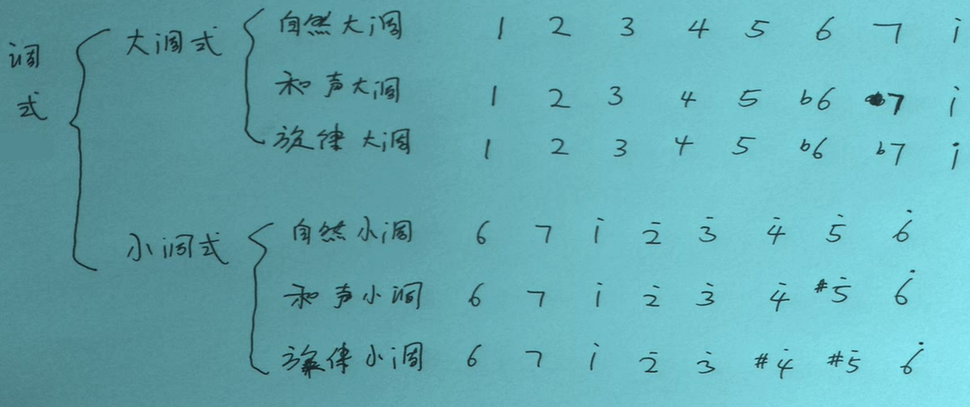 调式
大调式
自然大调 1 2 3 4 5 6 7 i
和声大调 1 2 3 4 5 b6 7 i
旋律大调 1 2 3 4 5 b6 b7 i
小调式
自然小调 6 7 i 2̇ 3̇ 4̇ 5̇ 6̇
和声小调 6 7 i 2̇ 3̇ 4̇ #5̇ 6̇
旋律小调 6 7 i 2̇ 3̇ #4̇ #5̇ 6̇